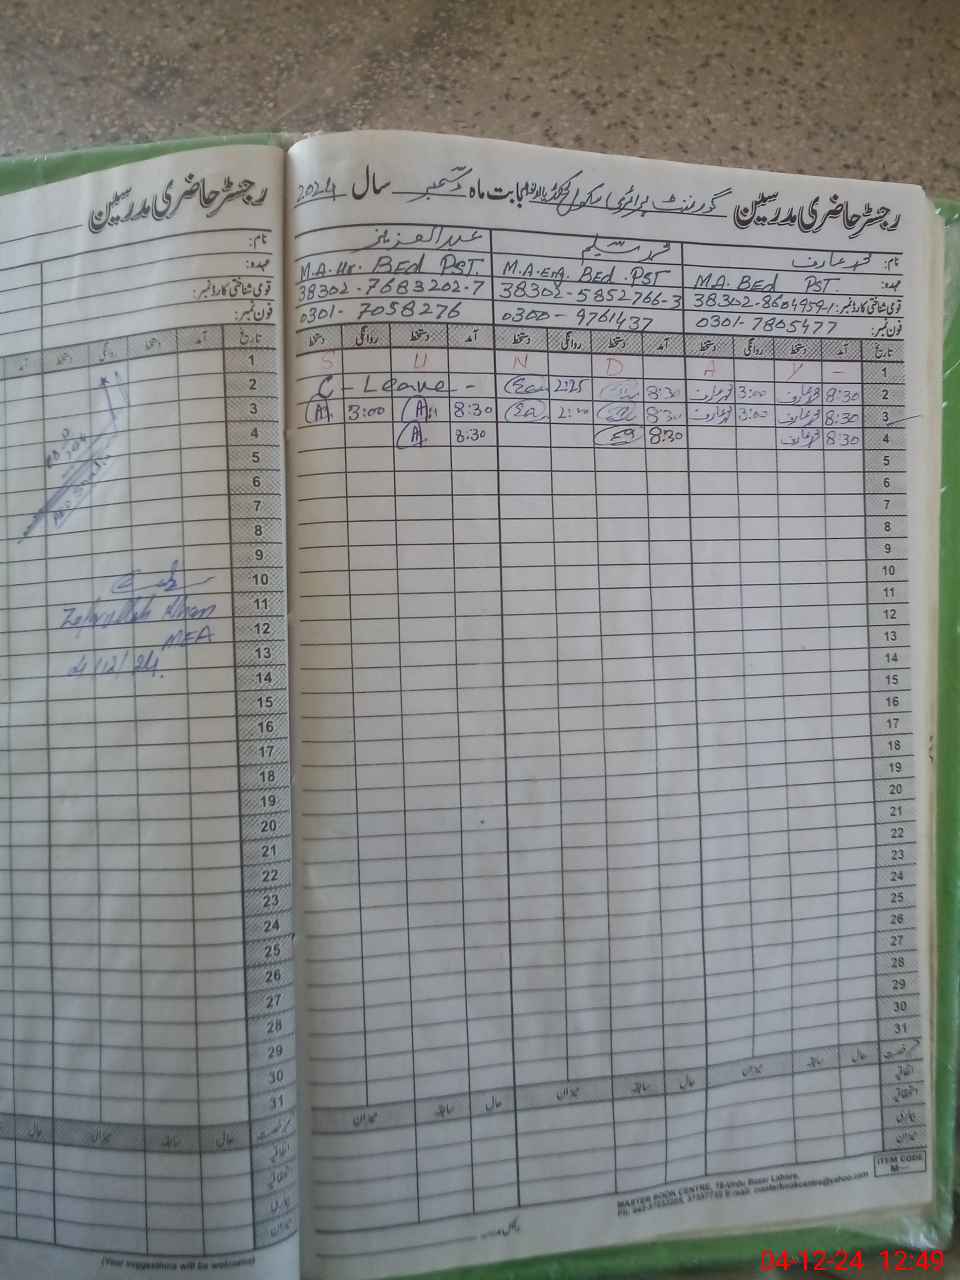 رجسٹر حاضری مدرسین
نام:
عہدہ:
قومی شناختی کارڈ نمبر:
فون نمبر:
آمد دستخط روانگی دستخط آمد تاریخ
1
2
3
4
5
6
7
8
9
10
11
12
13
14
15
16
17
18
19
20
21
22
23
24
25
26
27
28
29
30
31
Zafarullah Khan
MEA
4/12/24.
حال میزان سابقہ حال
اتفاقی
میزان
(Your suggestions will be welcome)
رجسٹر حاضری مدرسین گورنمنٹ پرائمری سکول بابت ماہ دسمبر سال 2024
نام: محمد عارف محمد سلیم عبدالعزیز
عہدہ: M.A. BEd PST. M.A.Eng. BEd. PST M.A.Ur. BEd PST.
قومی شناختی کارڈ نمبر: 38302-8604959-1 38302-5852766-3 38302-7683202-7
فون نمبر: 0301-7805477 0300-9761437 0301-7058276
تاریخ آمد دستخط روانگی دستخط آمد دستخط روانگی دستخط آمد دستخط روانگی دستخط
1 S U N D A Y -
2 8:30 محمد عارف 3:00 محمد عارف 8:30 2:25 C - Leave -
3 8:30 محمد عارف 3:00 محمد عارف 8:30 8:30 3:00
4 8:30 محمد عارف 8:30 8:30
5
6
7
8
9
10
11
12
13
14
15
16
17
18
19
20
21
22
23
24
25
26
27
28
29
30
31
حال سابقہ میزان حال سابقہ میزان حال سابقہ میزان
اتفاقی
استحقاقی
بیماری
میزان
ITEM CODE
M-
MASTER BOOK CENTRE, 18-Urdu Bazar Lahore.
04-12-24 12:49